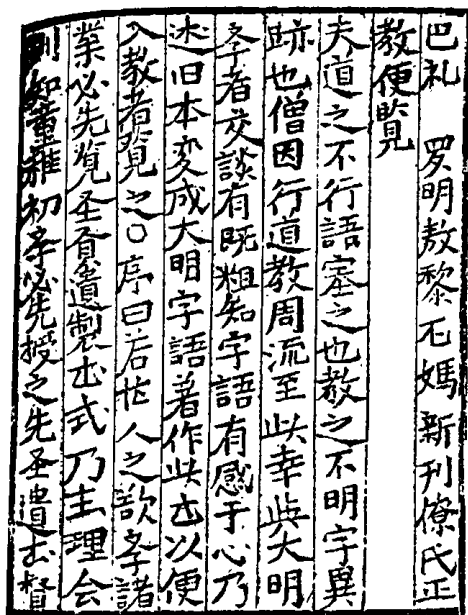 巴礼　罗明敖黎尼媽新刊僚氏正
教便覧
夫道之不行語塞之也教之不明字異
跡也僧因行道教周流至此幸與大明
斈者交談有既粗知字語有感于心乃
述旧本変成大明字語著作此书以便
入教者覧之〇序曰若世人之欲斈諸
業必先覧圣賢遺製书式乃主理会
則知童稚初斈必先授之先圣遺书督